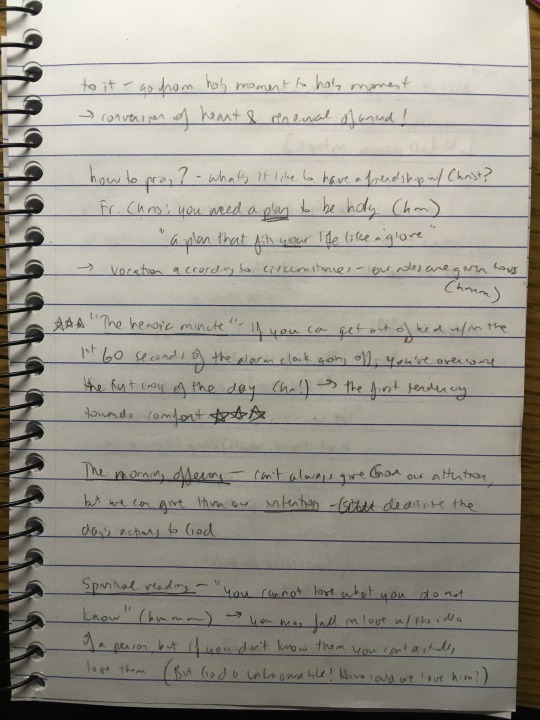 to it – go from holy moment to holy moment
→ conversion of heart & renewal of mind!
how to pray? – what's it like to have a friendship w/ Christ?
Fr. Chris: you need a plan to be holy (hm)
"a plan that fits your life like a glove"
→ vocation according to circumstances – our roles are given to us
(hmm)
☆☆☆ "The heroic minute" – if you can get out of bed w/in the
1st 60 seconds of the alarm clock going off, you've overcome
the first cross of the day (hm!) → the first tendency
towards comfort ☆☆☆
The morning offering – can't always give God our attention,
but we can give Him our intention – dedicate the
day's actions to God
Spiritual reading – "you cannot love what you do not
know" (hmmm) → you may fall in love w/ the idea
of a person but if you don't know them you can't actually
love them (But God is unknowable! How could we love him?)